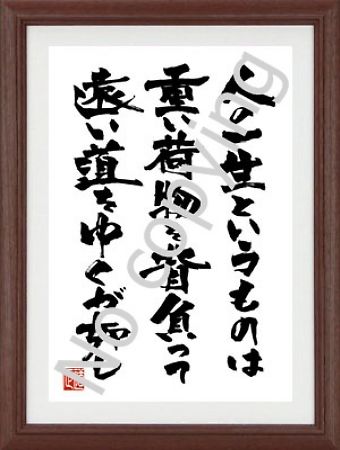 人の一生というものは
重い荷物を背負って
遠い道をゆくが如し
No copying